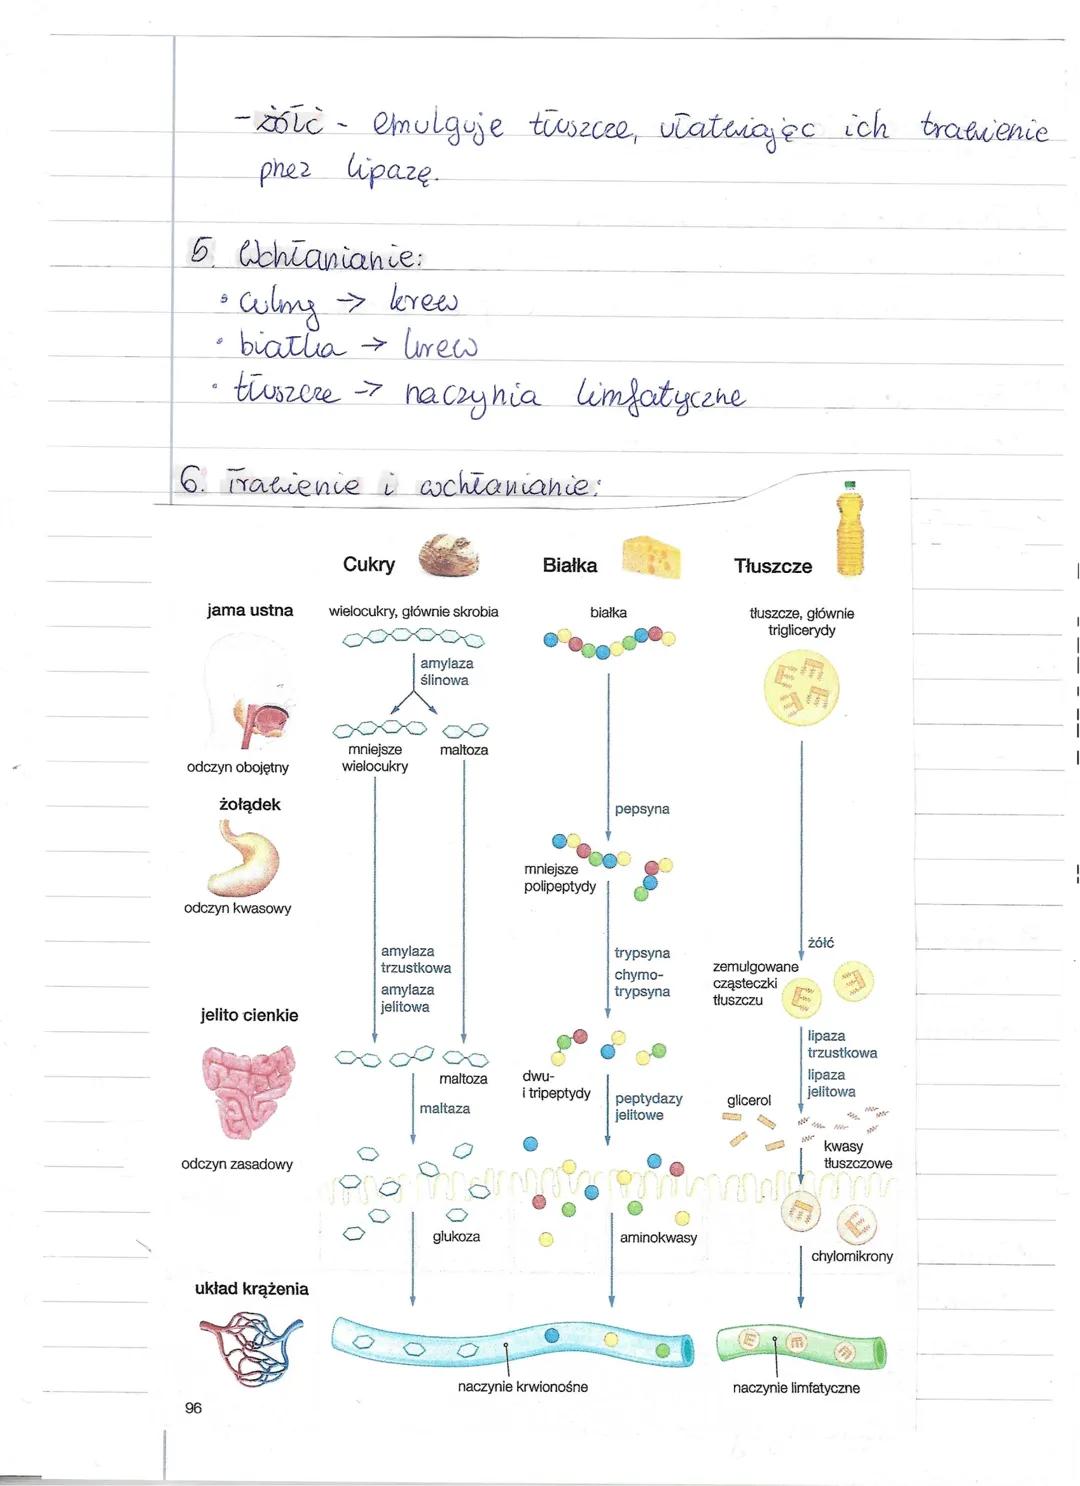 - żółć - emulguje tłuszcze, ułatwiając ich trawienie
przez lipazę.
5. Wchłanianie:
• cukry → krew
• białka → krew
• tłuszcze → naczynia limfatyczne
6. Trawienie i wchłanianie:
Cukry
Białka
Tłuszcze
jama ustna
wielocukry, głównie skrobia
białka
tłuszcze, głównie
triglicerydy
amylaza
ślinowa
mniejsze
wielocukry
maltoza
odczyn obojętny
żołądek
pepsyna
mniejsze
polipeptydy
odczyn kwasowy
amylaza
trzustkowa
amylaza
jelitowa
trypsyna
chymo-
trypsyna
żółć
zemulgowane
cząsteczki
tłuszczu
jelito cienkie
lipaza
trzustkowa
lipaza
jelitowa
maltoza
dwu-
i tripeptydy
maltaza
peptydazy
jelitowe
glicerol
kwasy
tłuszczowe
odczyn zasadowy
glukoza
aminokwasy
chylomikrony
układ krążenia
naczynie krwionośne
naczynie limfatyczne
96